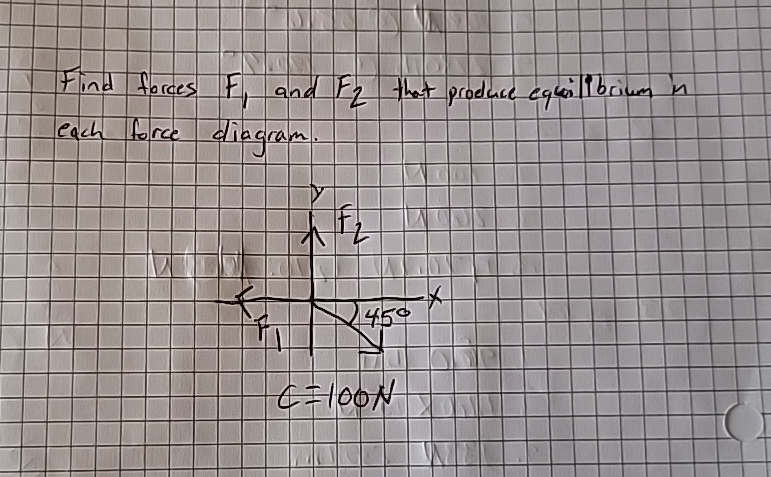 Find forces F₁ and F₂ that produce equilibrium in
each force diagram.
y
F₂
x
45°
F₁
C=100N